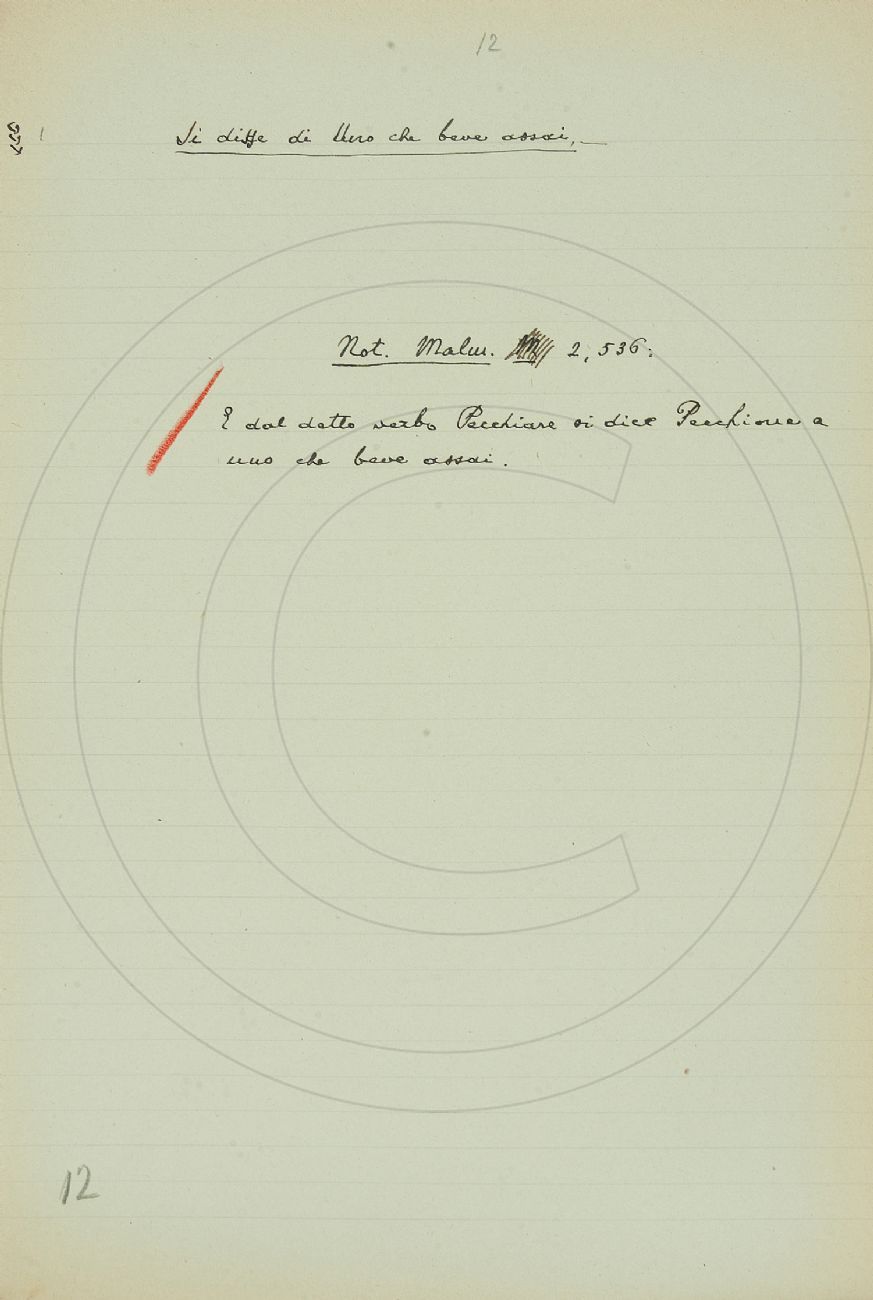 12
Si disse di Uno che beve assai,—
Not. Malm. 2, 536:
E dal detto verbo Pecchiare si dice Pecchione a
uno che beve assai.
12